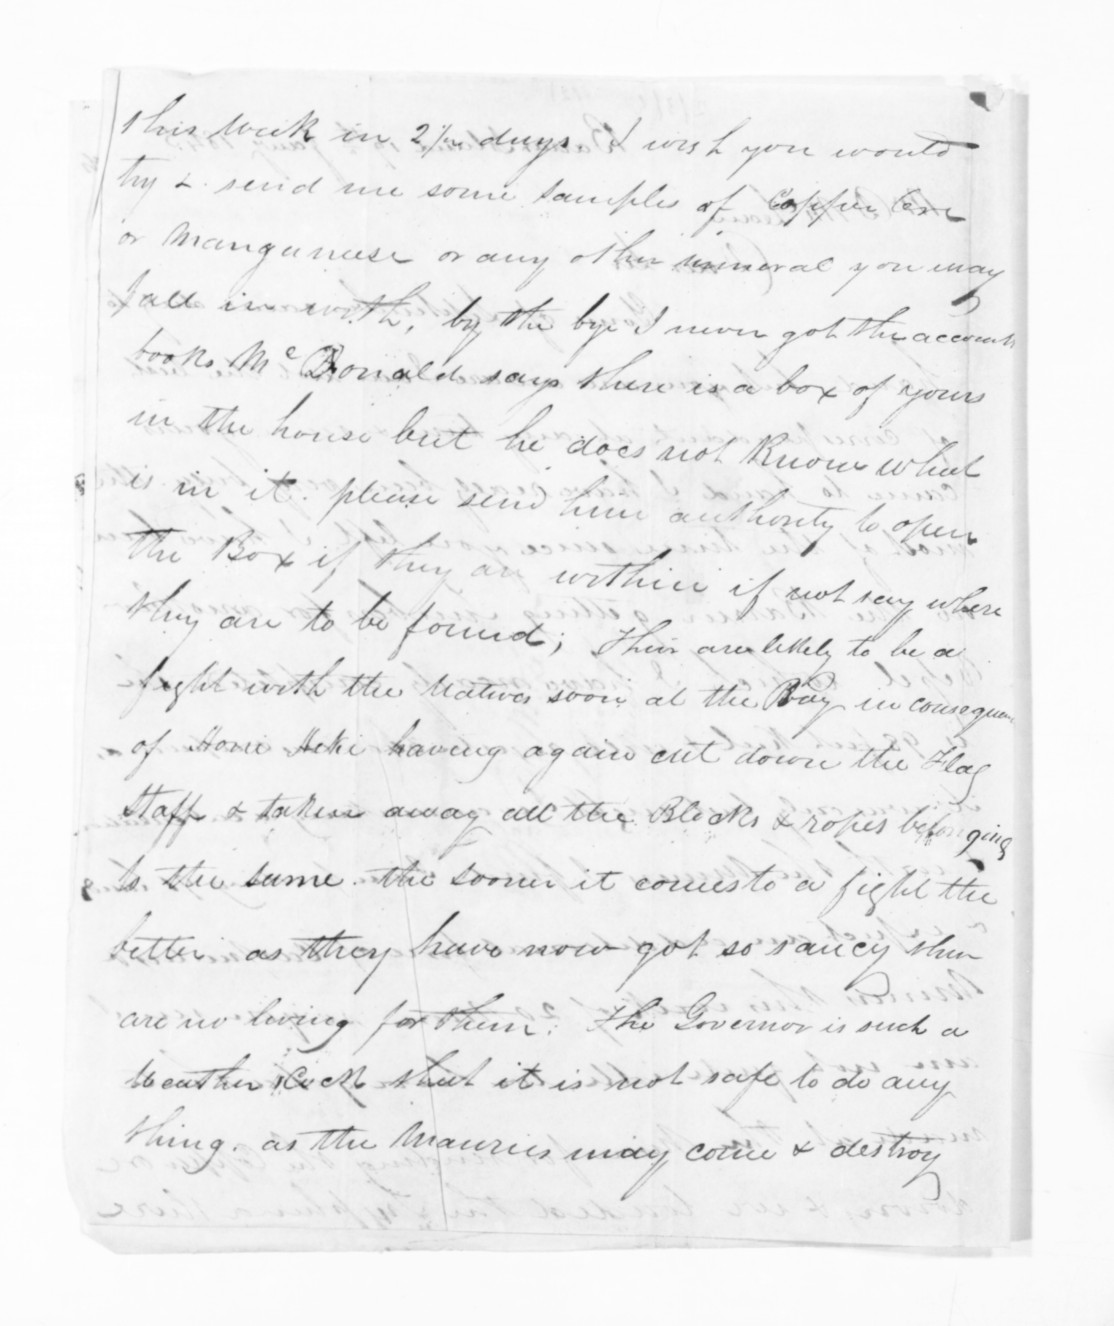 this Week in 2½ days I wish you would
try & send me some samples of Copper Ore
or Manganeese or any other mineral you may
fall in with, by the bye I never got the account
books Mc Donald says there is a box of yours
in the house but he does not Know what
is in it. please send him authority to open
the Box if they are within if not say where
they are to be found; Thier are likely to be a
fight with the Natives soon at the Bay in consequen
of Honi Heke having again cut down the Flag
Staff & taken away all the Blocks & ropes belonging
to the same. the sooner it comes to a fight the
better as they have now got so saucy ther
are no living for them. The Governor is such a
Weather Cock that it is not safe to do any
thing. as the Mauries may come & destroy